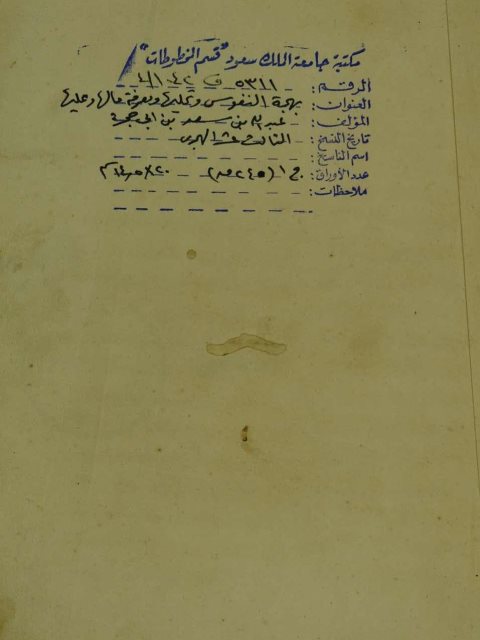 مكتبة جامعة الملك سعود "قسم المخطوطات"
الرقم: ٥٣١١ ف
العنوان: بهجة النفوس وتحليها ومعرفة مالها وعليها
المؤلف: عبدالله بن سعد بن أبي جمرة
تاريخ النسخ: الثالث عشر الهجري
اسم الناسخ:
عدد الأوراق: ج ١ (٢٤٥ ق)
ملاحظات: